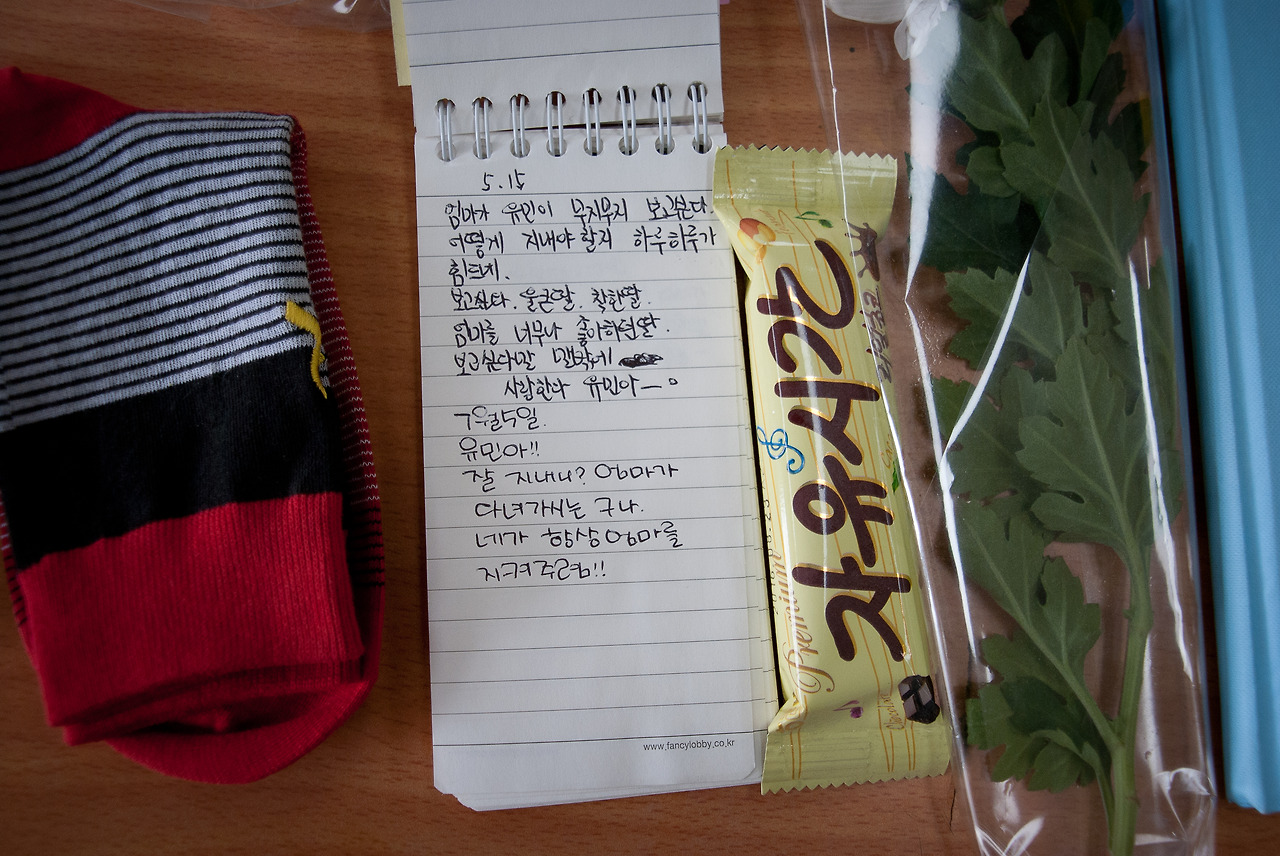 5.15
엄마가 유민이 무지무지 보고싶다.
어떻게 지내야 할지 하루하루가
힘드네.
보고싶다. 울큰딸. 착한딸.
엄마를 너무나 좋아하던딸.
보고싶단말 밖에
사랑한다 유민아ー。
7월5일.
유민아!!
잘 지내니? 엄마가
다녀가시는 구나.
네가 항상 엄마를
지켜주렴!!
www.fancylobby.co.kr
자유시간
Premium